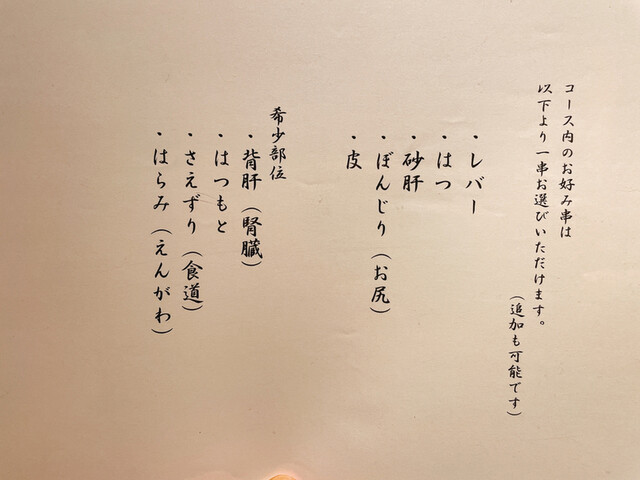 コース内のお好み串は
以下より一串お選びいただけます。
（追加も可能です）
・レバー
・はつ
・砂肝
・ぼんじり（お尻）
・皮
希少部位
・背肝（腎臓）
・はつもと
・さえずり（食道）
・はらみ（えんがわ）